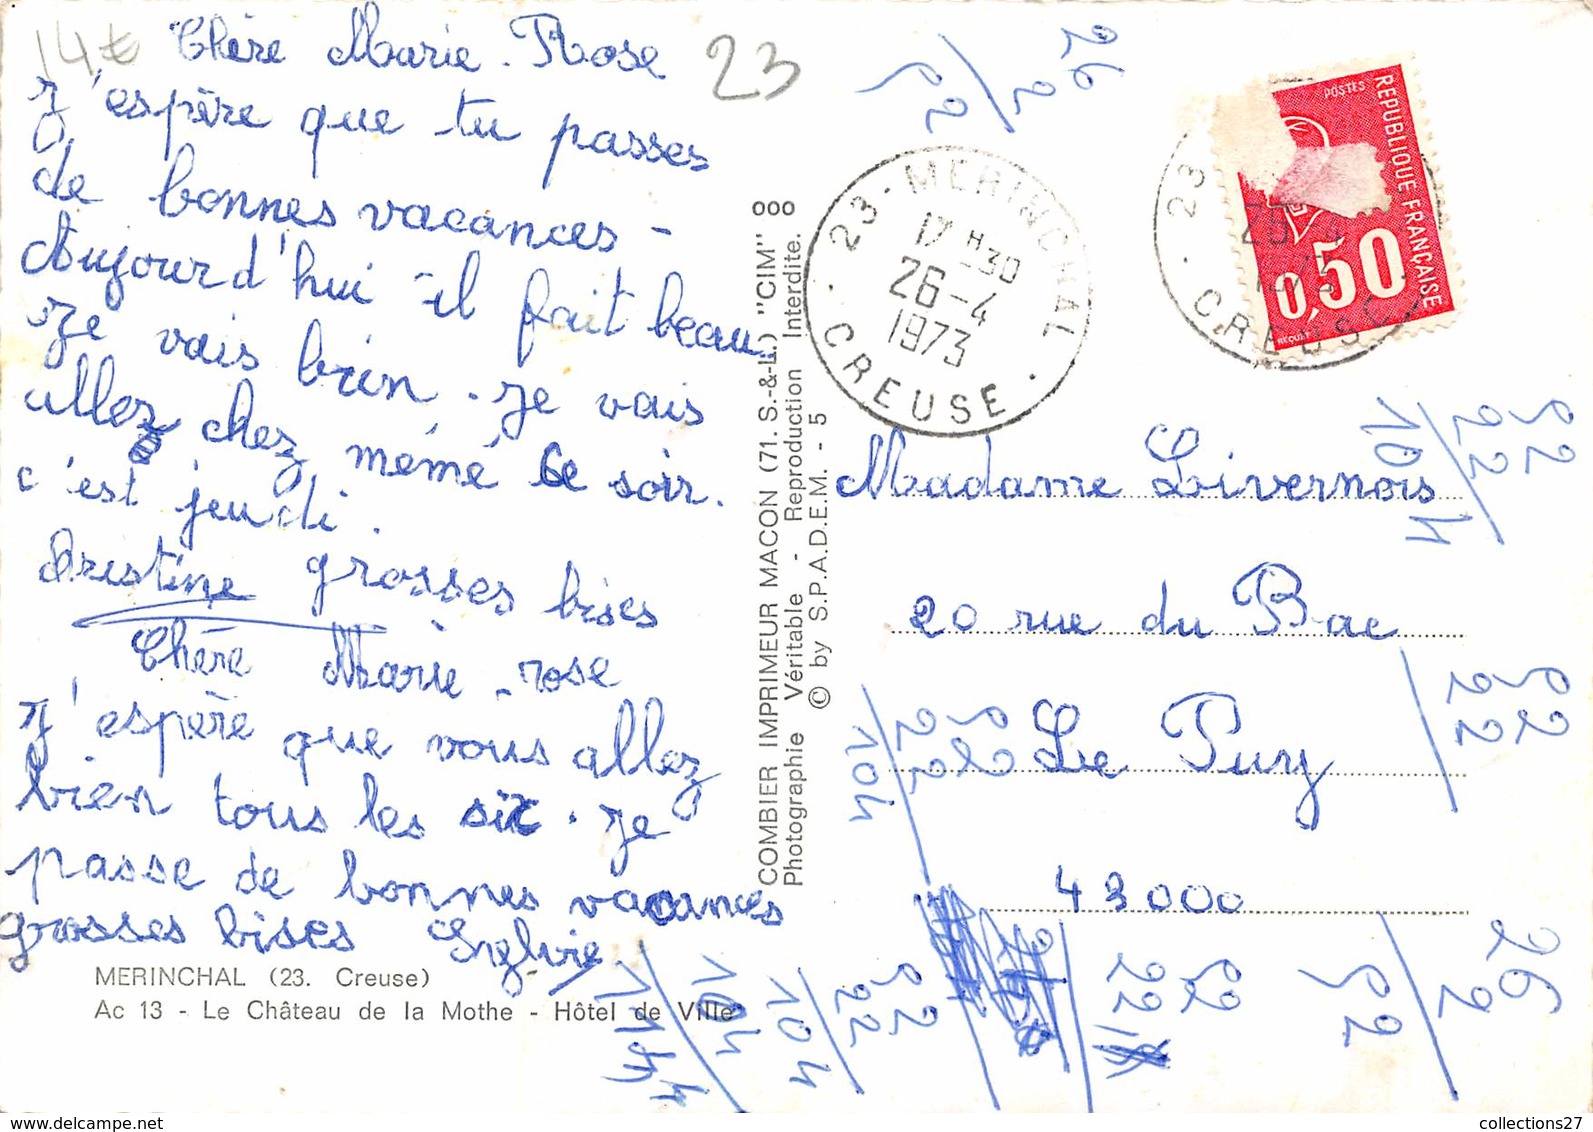 14€
23
Chère Marie-Rose
J'espère que tu passes
de bonnes vacances -
Aujourd'hui il fait beau.
Je vais bien. Je vais
allez chez mémé ce soir.
c'est jeudi.
grosses bises
Chère Marie-rose
J'espère que vous allez
bien tous les six. Je
passe de bonnes vacances
grosses bises Sylvie
MERINCHAL (23. Creuse)
Ac 13 - Le Château de la Mothe - Hôtel de Ville
COMBIER IMPRIMEUR MACON (71. S.-&-L.) "CIM" ooo
Photographie Véritable - Reproduction Interdite.
© by S.P.A.D.E.M. - 5
23 - MERINCHAL
17 H 30
26-4
1973
CREUSE
23
CREUSE
POSTES
REPUBLIQUE FRANÇAISE
0,50
Madame Livernois
20 rue du Bac
Le Puy
43000
26
2
52
52
22
104
52
22
52
22
104
26
2
52
52
22
52
22
104
104
1144
collections27